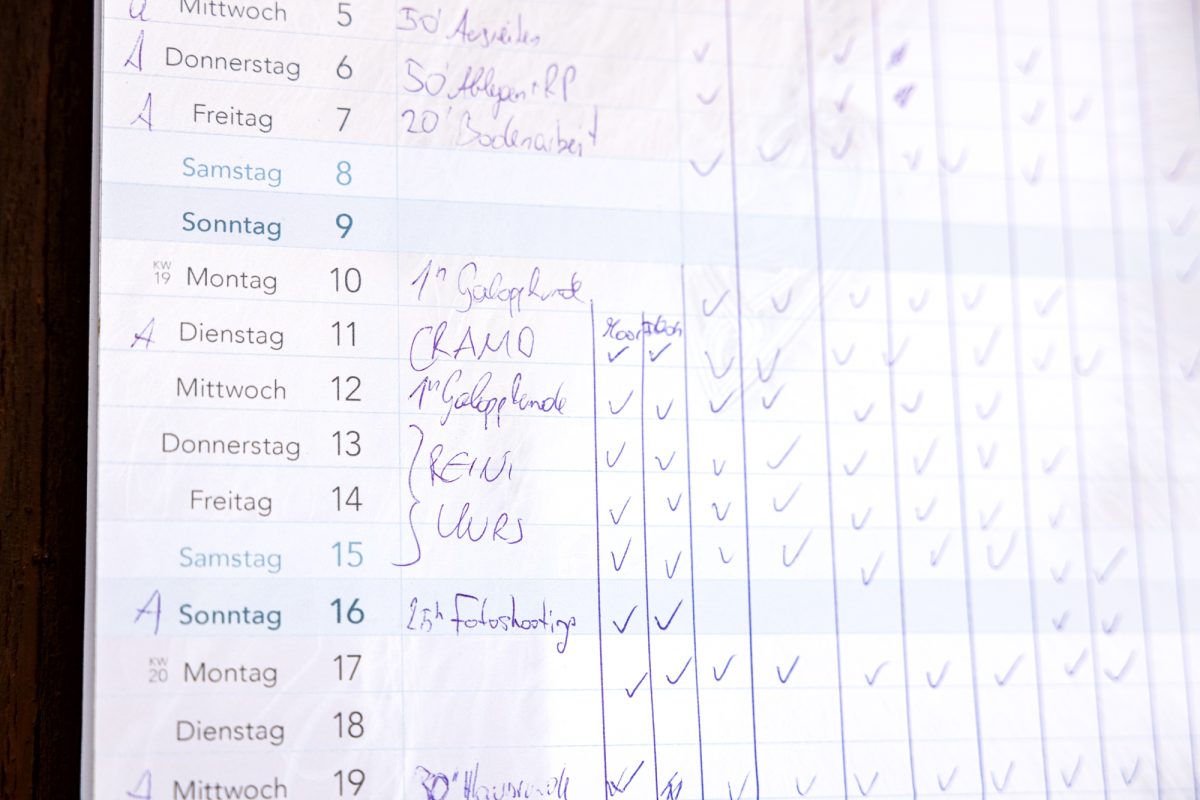 Mittwoch 5 50' Ausreiten
A Donnerstag 6 50' Ablegen + RP
A Freitag 7 20' Bodenarbeit
Samstag 8
Sonntag 9
KW 19 Montag 10 1h Galopprunde
A Dienstag 11 CRAMO
Mittwoch 12 1h Galopprunde
Donnerstag 13 REINI
Freitag 14 KURS
Samstag 15
A Sonntag 16 2,5h Fotoshooting
KW 20 Montag 17
Dienstag 18
A Mittwoch 19 30'